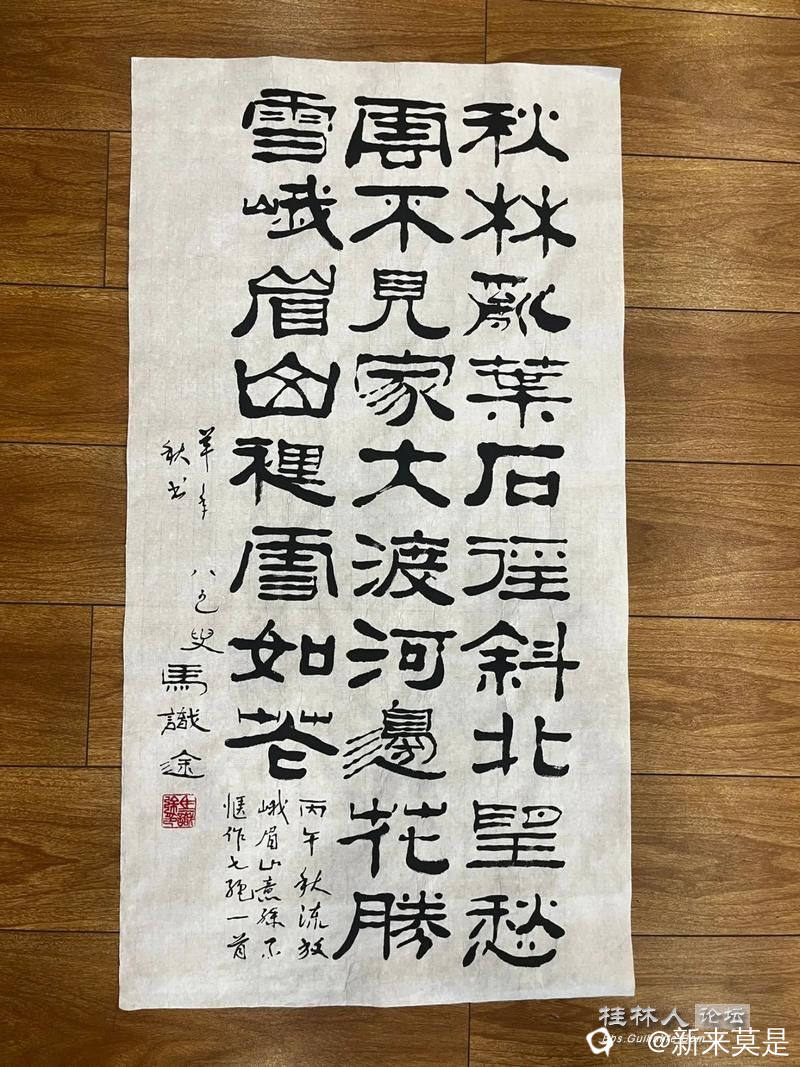 秋林亂葉石徑斜北望愁
雲不見家大渡河邊花勝
雪峨眉山裡雪如花
丙午秋流放
峨眉山意殊不
愜作七绝一首
羊年
秋书
八九叟
馬識途
桂林人论坛
@新来莫是